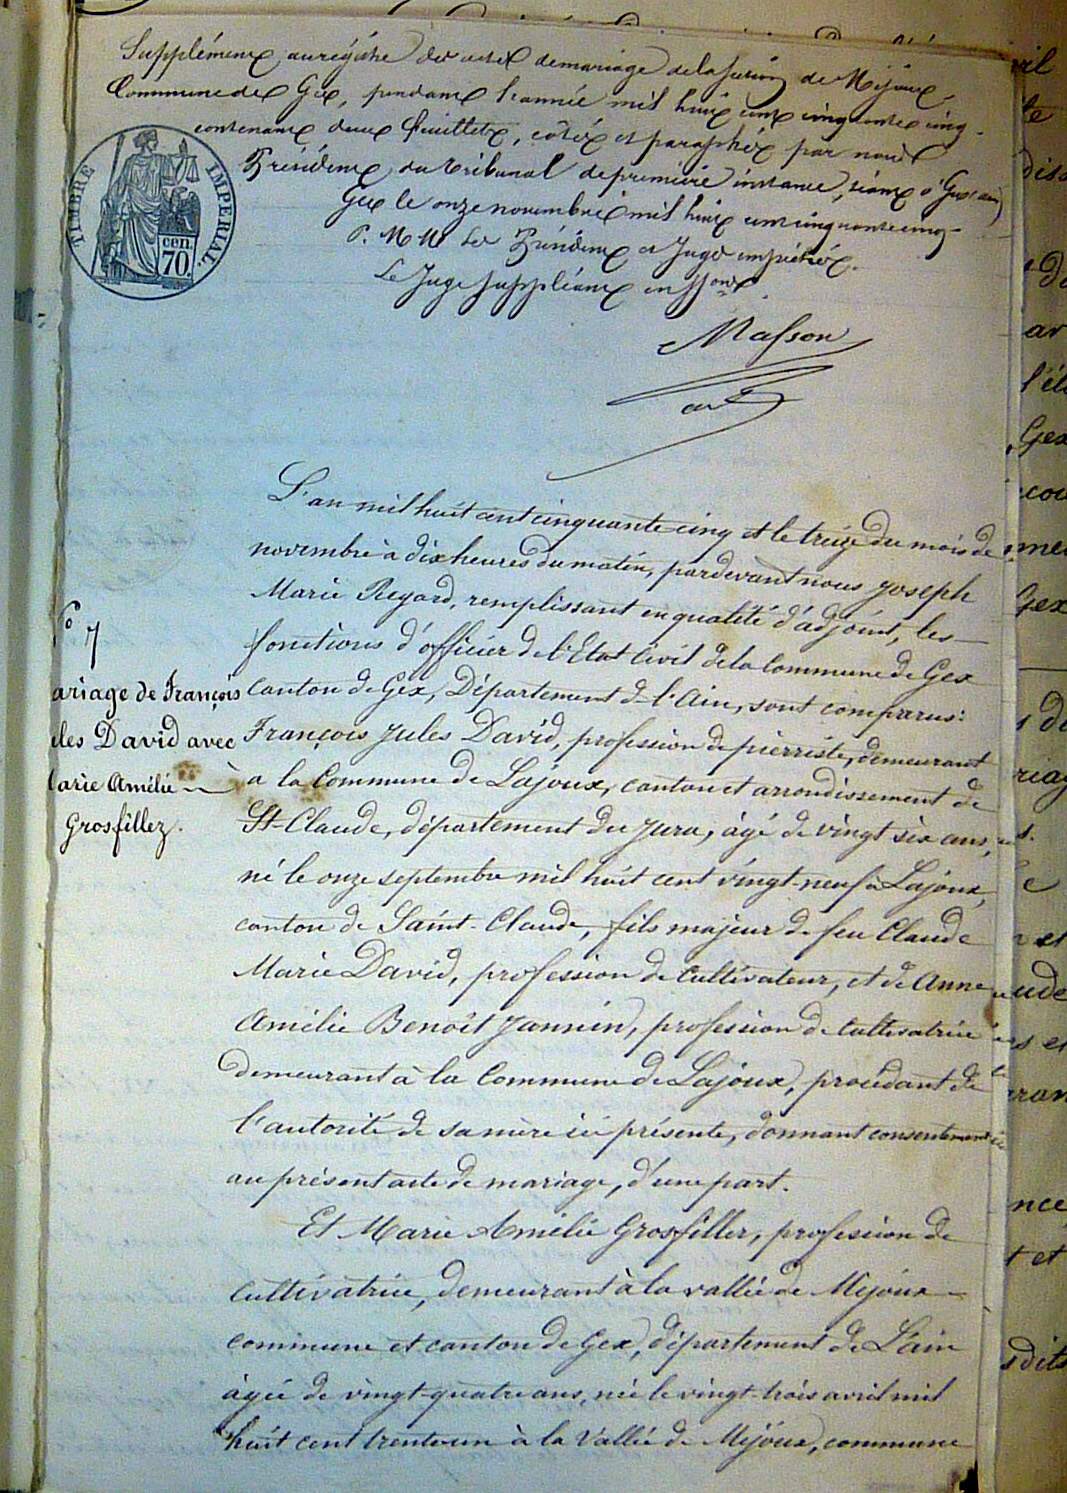 Supplément au régistre des actes de mariage de la section de Mijoux,
Commune de Gex, pendant l'année mil huit cent cinquante cinq
contenant deux feuillets, côtés et paraphés par nous
Président du tribunal de première instance, séant à Gex (ain)
Gex le onze novembre mil huit cent cinquante cinq
P. MM les Président et Juges empêchés.
Le Juge suppléant en ffons
Masson
TIMBRE IMPERIAL.
cen.
70
L'an mil huit cent cinquante cinq et le treize du mois de
novembre à dix heures du matin, pardevant nous Joseph
Marie Regard, remplissant en qualité d'adjoint, les
fonctions d'officier de l'Etat Civil de la Commune de Gex
canton de Gex, Département de l'Ain, sont comparus:
François Jules David, profession de pierriste, demeurant
a la Commune de Lajoux, canton et arrondissement de
St-Claude, département du Jura, âgé de vingt six ans,
né le onze septembre mil huit cent vingt-neuf à Lajoux,
canton de Saint-Claude, fils majeur de feu Claude
Marie David, profession de Cultivateur, et de Anne
Amélie Benoît Jannin, profession de Cultivatrice
demeurant à la Commune de Lajoux, procédant de
l'autorité de sa mère ici présente, donnant consentement
au présent acte de mariage, d'une part.
Et Marie Amélie Grosfiller, profession de
Cultivatrice, demeurant à la vallée de Mijoux
commune et canton de Gex, département de L'ain
âgée de vingt-quatre ans, née le vingt-trois avril mil
huit cent trente un à la Vallée de Mijoux, commune
No 7
ariage de François
ules David avec
arie Amélie
Grosfillez.